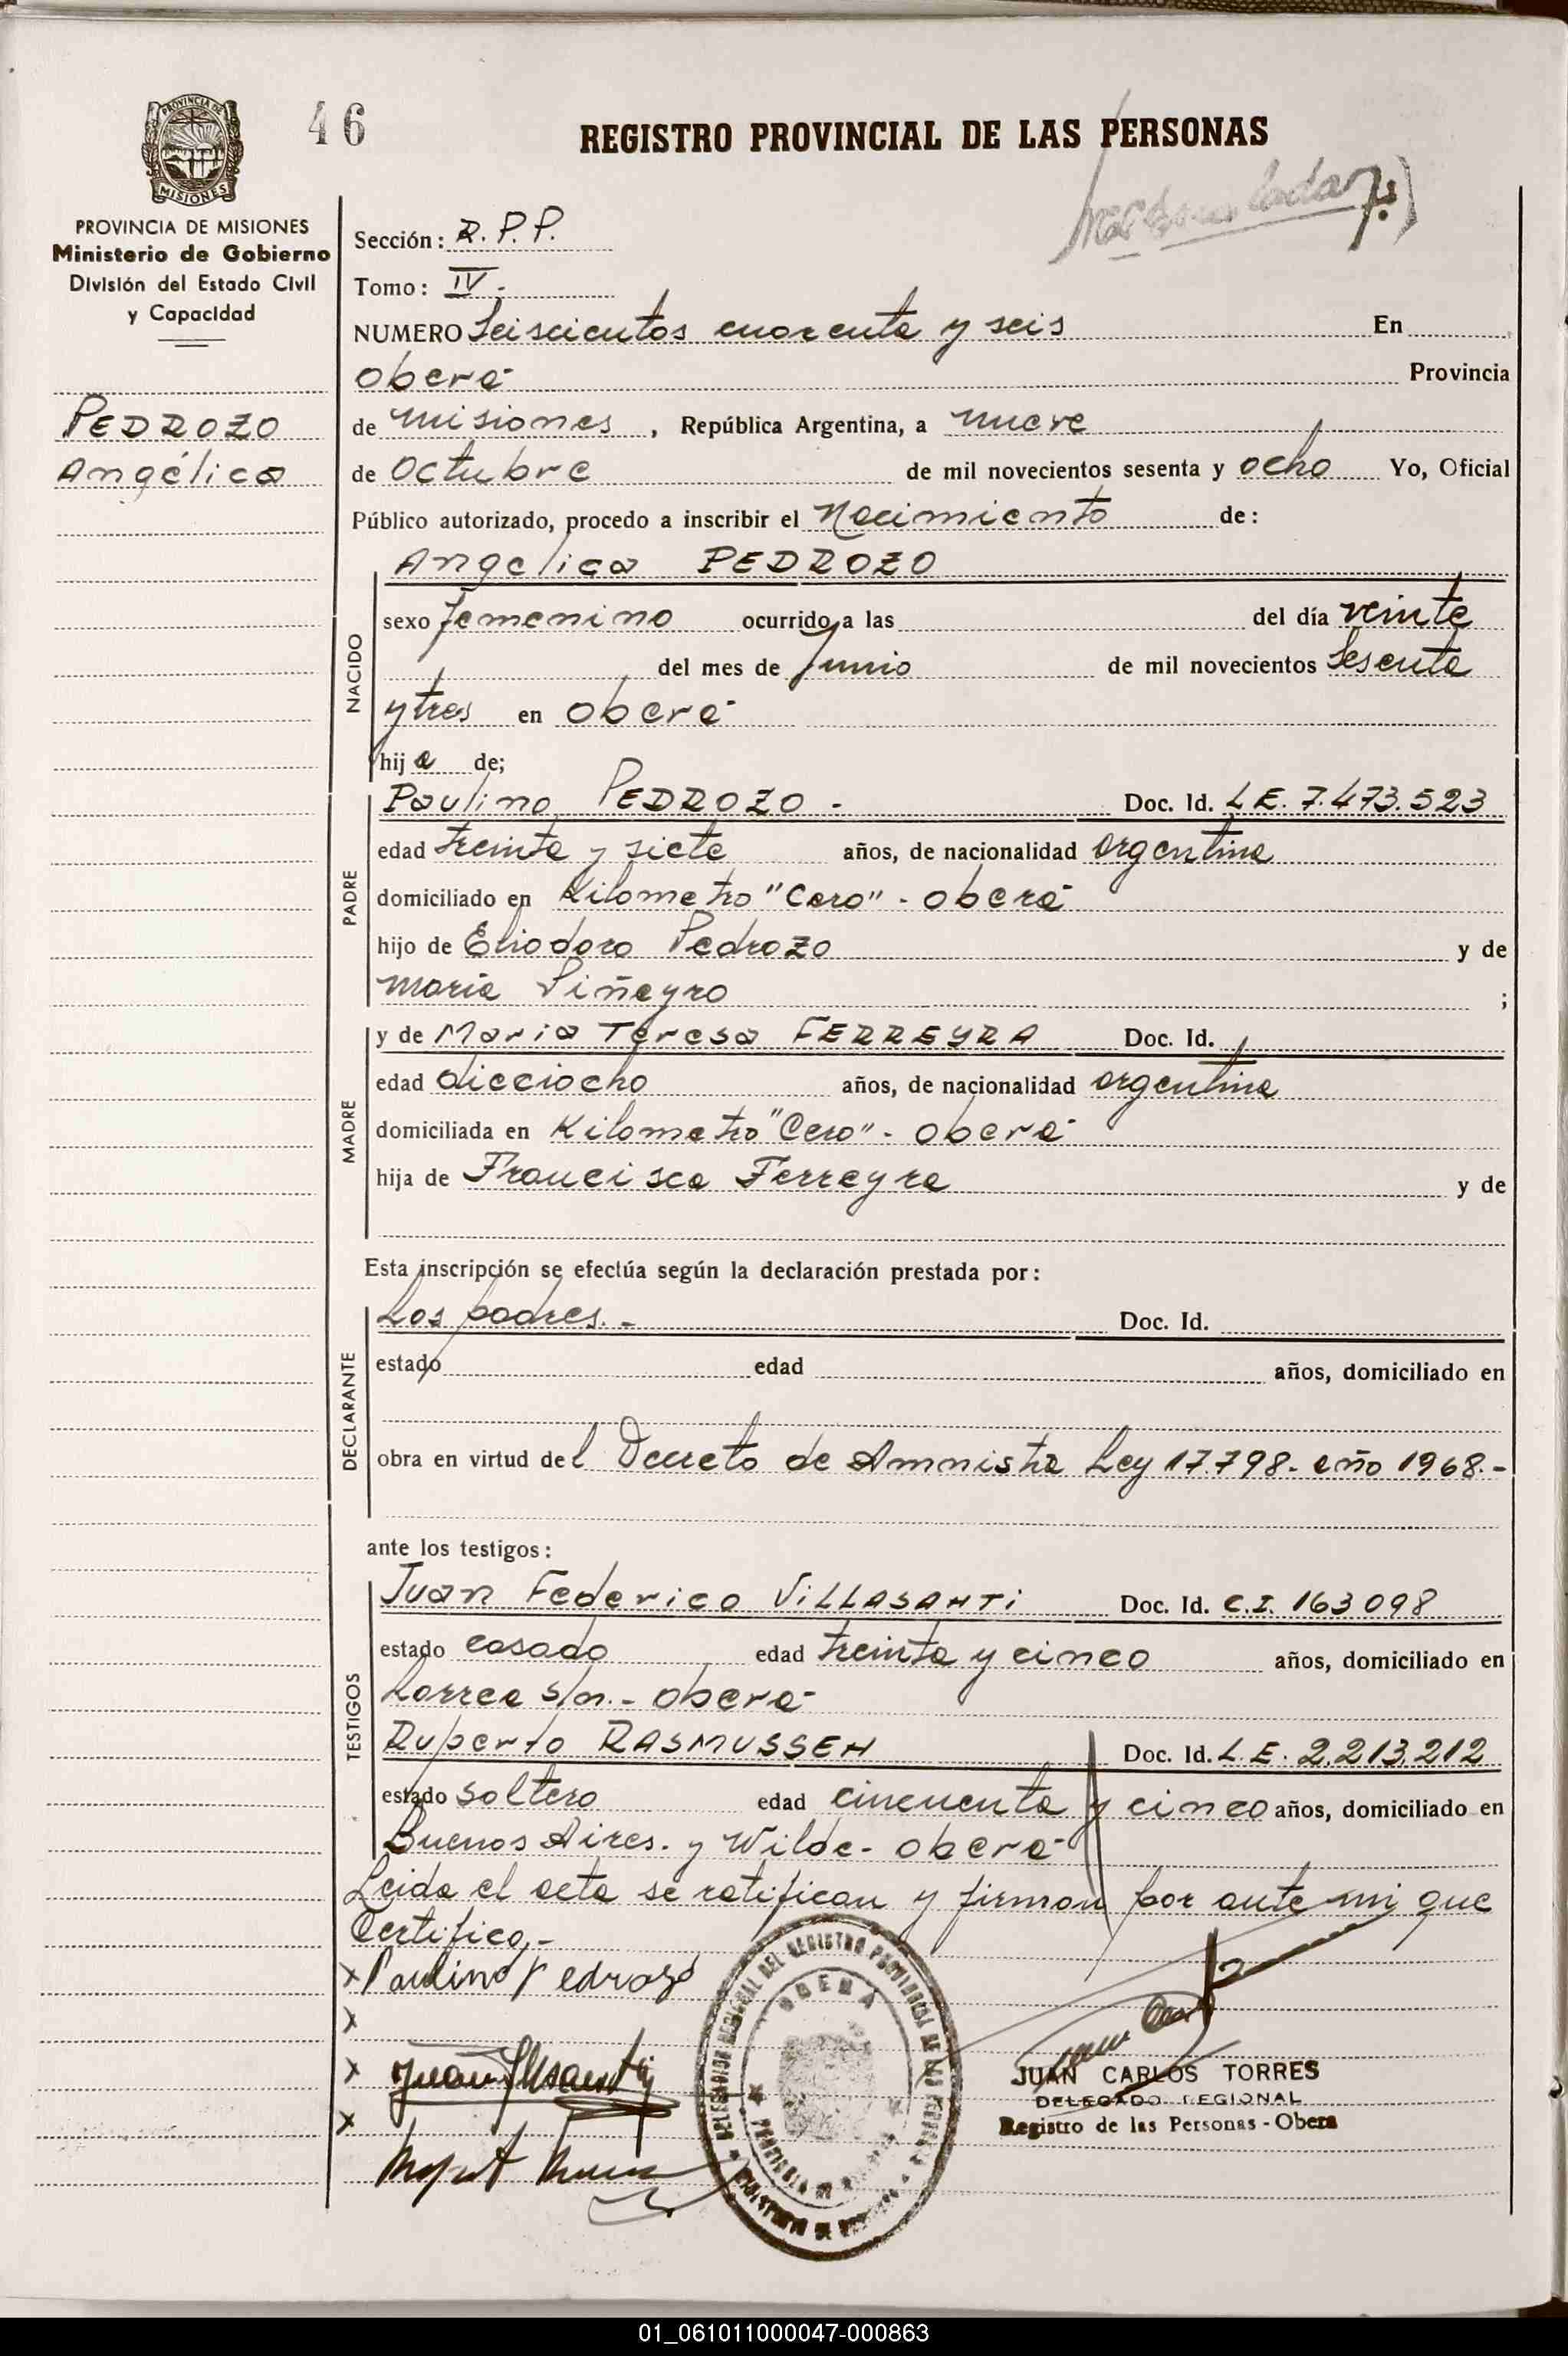 46
REGISTRO PROVINCIAL DE LAS PERSONAS
PROVINCIA DE
MISIONES
PROVINCIA DE MISIONES
Ministerio de Gobierno
División del Estado Civil
y Capacidad
PEDROZO
Angélica
Sección: R.P.P.
Tomo: IV.
NUMERO Seiscientos cuarenta y seis En
Oberá Provincia
de Misiones, República Argentina, a nueve
de Octubre de mil novecientos sesenta y ocho Yo, Oficial
Público autorizado, procedo a inscribir el Nacimiento de:
NACIDO
Angélica PEDROZO
sexo femenino ocurrido a las del día veinte
del mes de Junio de mil novecientos sesenta
y tres en Oberá
hija de;
PADRE
Paulino PEDROZO.- Doc. Id. L.E. 7.473.523
edad treinta y siete años, de nacionalidad argentina
domiciliado en Kilometro "Cero" - Oberá
hijo de Eliodoro Pedrozo y de
María Piñeyro ;
MADRE
y de María Teresa FERREYRA Doc. Id.
edad dieciocho años, de nacionalidad argentina
domiciliada en Kilometro "Cero" - Oberá
hija de Francisca Ferreyra y de
Esta inscripción se efectúa según la declaración prestada por:
DECLARANTE
Los padres.- Doc. Id.
estado edad años, domiciliado en
obra en virtud del Decreto de Amnistía Ley 17.798- año 1968.-
ante los testigos:
TESTIGOS
Juan Federico VILLASANTI Doc. Id. C.I. 163098
estado casado edad treinta y cinco años, domiciliado en
Larrea s/n.- Oberá
Ruperto RASMUSSEN Doc. Id. L.E. 2.213.212
estado soltero edad cincuenta y cinco años, domiciliado en
Buenos Aires. y Wilde- Oberá
Leida el acta se ratifican y firman por ante mi que
Certifico,-
x Paulino Pedrozo
x
x
x
OBERA
JUAN CARLOS TORRES
DELEGADO REGIONAL
Registro de las Personas - Obera
01_061011000047-000863